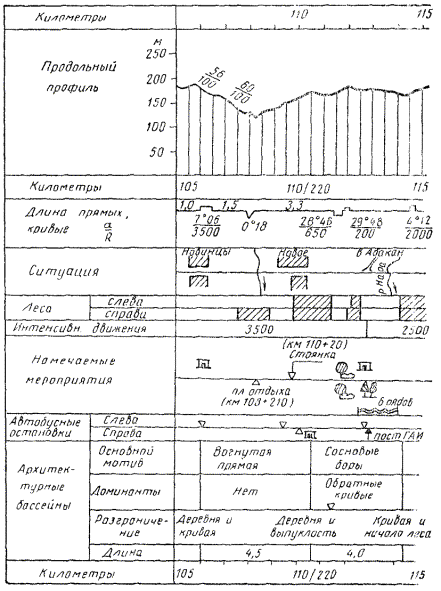 Километры 110 115
Продольный профиль
м
250
200
150
100
50
56/100
60/100
Километры 105 110/220 115
Длина прямых, кривые α/R
1,0 1,5 3,3
7°06/3500 0°18 28°46/650 29°48/200 4°12/2000
Ситуация
Новинцы Новое в Абакан
Леса слева
справа
Интенсивн. движения 3500 2500
Намечаемые мероприятия
(км 110+20)
Стоянка
пл отдыха
(км 108+210)
Автобусные остановки Слева
Справа пост ГАИ
Архитектурные бассейны
Основной мотив Вогнутая прямая Сосновые боры
Доминанты Нет Обратные кривые
Разграничение Деревня и кривая Деревня и выпуклость Кривая и начало леса
Длина 4,5 4,0
Километры 105 110/220 115